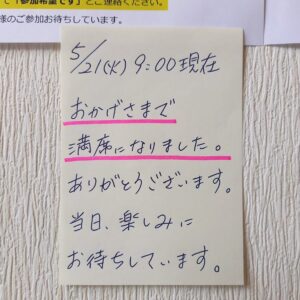 で「参加希望です」とご連絡ください。
様のご参加お待ちしています。
5/21(火) 9:00現在
おかげさまで
満席になりました。
ありがとうございます。
当日、楽しみに
お待ちしています。